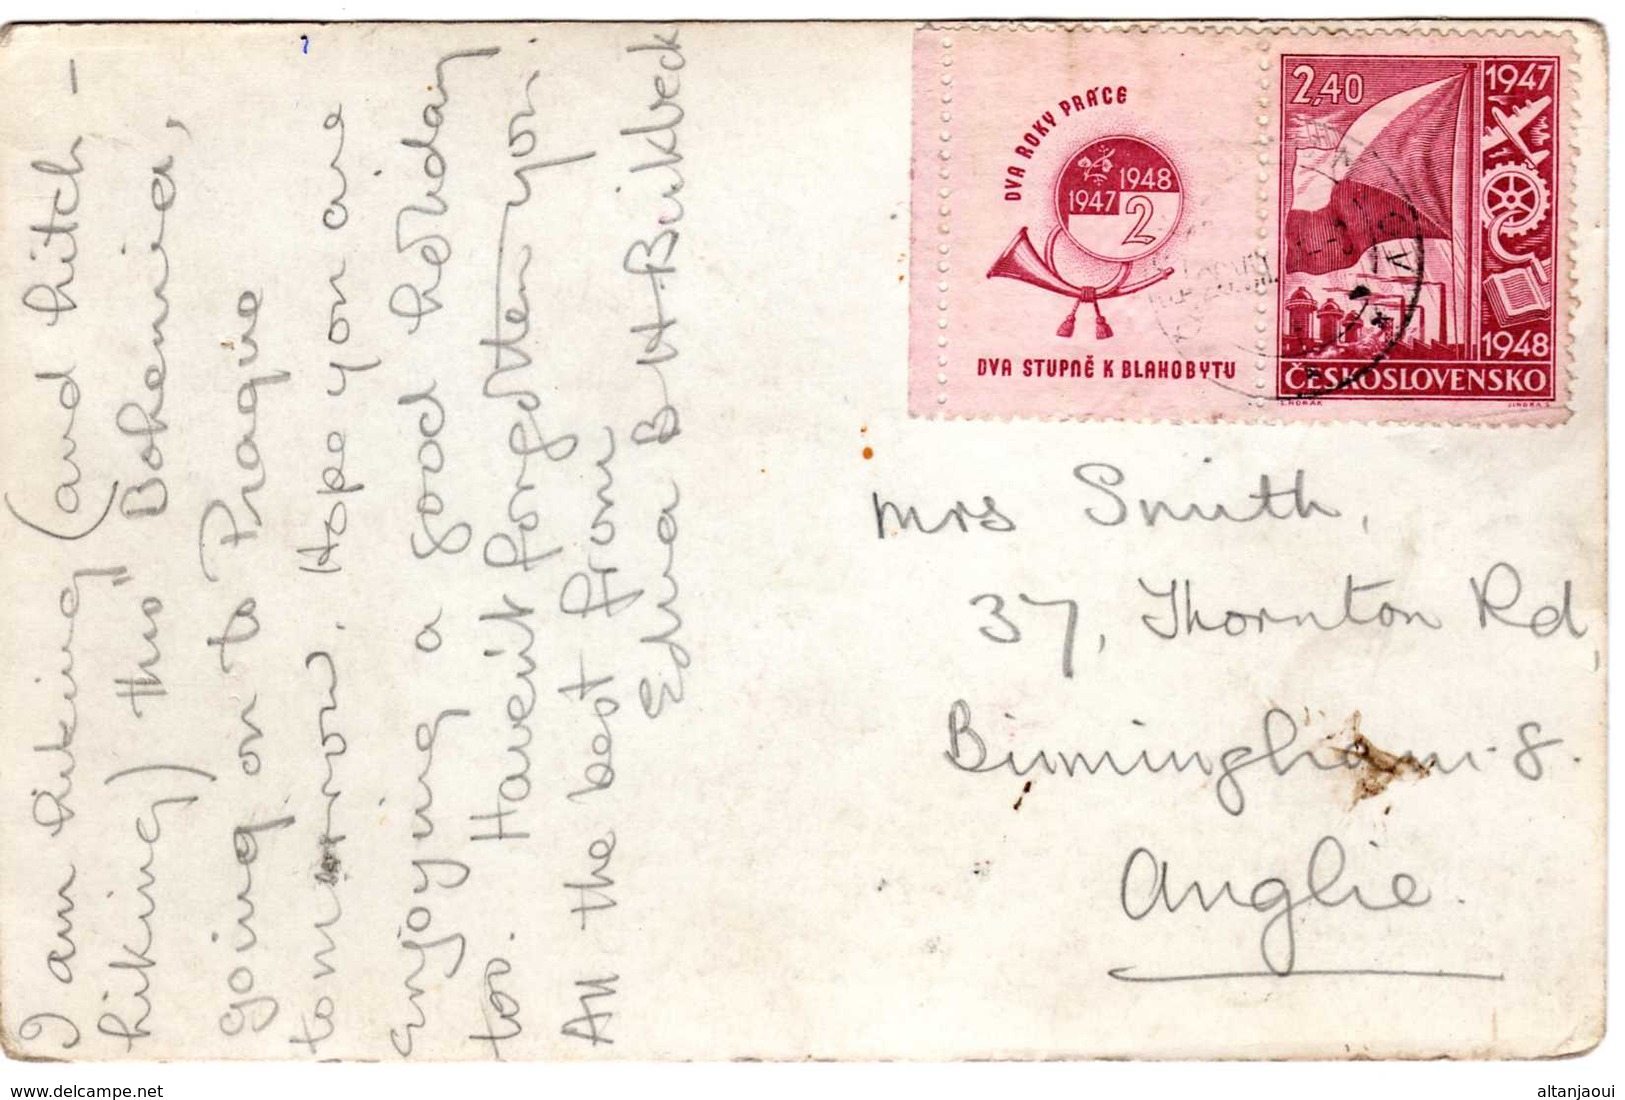 I am hiking (and hitch -
hiking) thro' Bohemia,
going on to Prague
tomorrow. Hope you are
enjoying a good holiday
too. Haven't forgotten you.
All the best from
Edna B H Birkbeck
DVA ROKY PRÁCE
1947 1948
2
DVA STUPNĚ K BLAHOBYTU
2,40
1947
1948
ČESKOSLOVENSKO
Mrs Smith,
37, Thornton Rd,
Birmingham. 8.
Anglie.
www.delcampe.net
altanjaoui